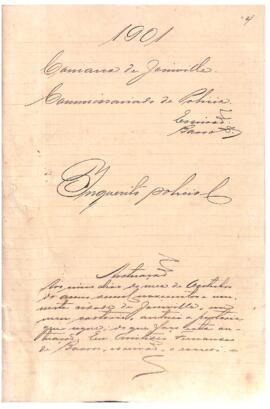 4
1901
Comarca de Joinville
Commissariado de Policia
Escrivão
Barros
Inquerito policial
Autuação
Aos cinco dias do mez de Outubro
do anno de mil novecentos e um
nesta cidade de Joinville, em
meu cartorio, autuo a portaria
que segue; do que faço esta
Eu
de Barros, escrivão, o escrevi